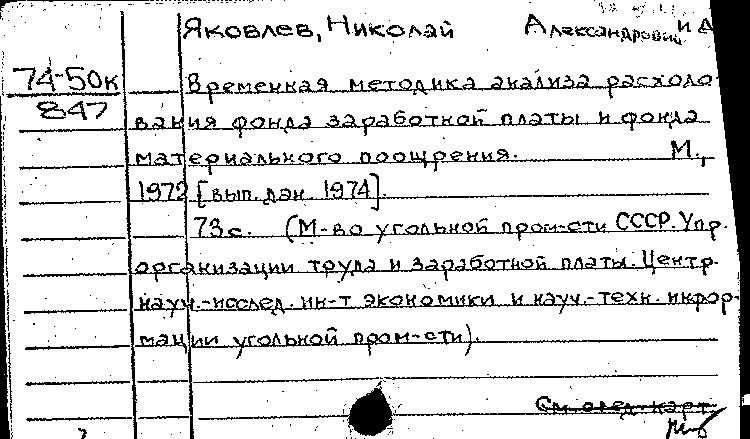 Яковлев, Николай Александрович и д
74-50к Временная методика анализа расходо-
847 вания фонда заработной платы и фонда
материального поощрения. М.,
1972 [вып. дан. 1974].
73с. (М-во угольной пром-сти СССР. Упр.
организации труда и заработной платы. Центр.
науч.-исслед. ин-т экономики и науч.-техн. инфор-
мации угольной пром-сти).
См. след. карт.